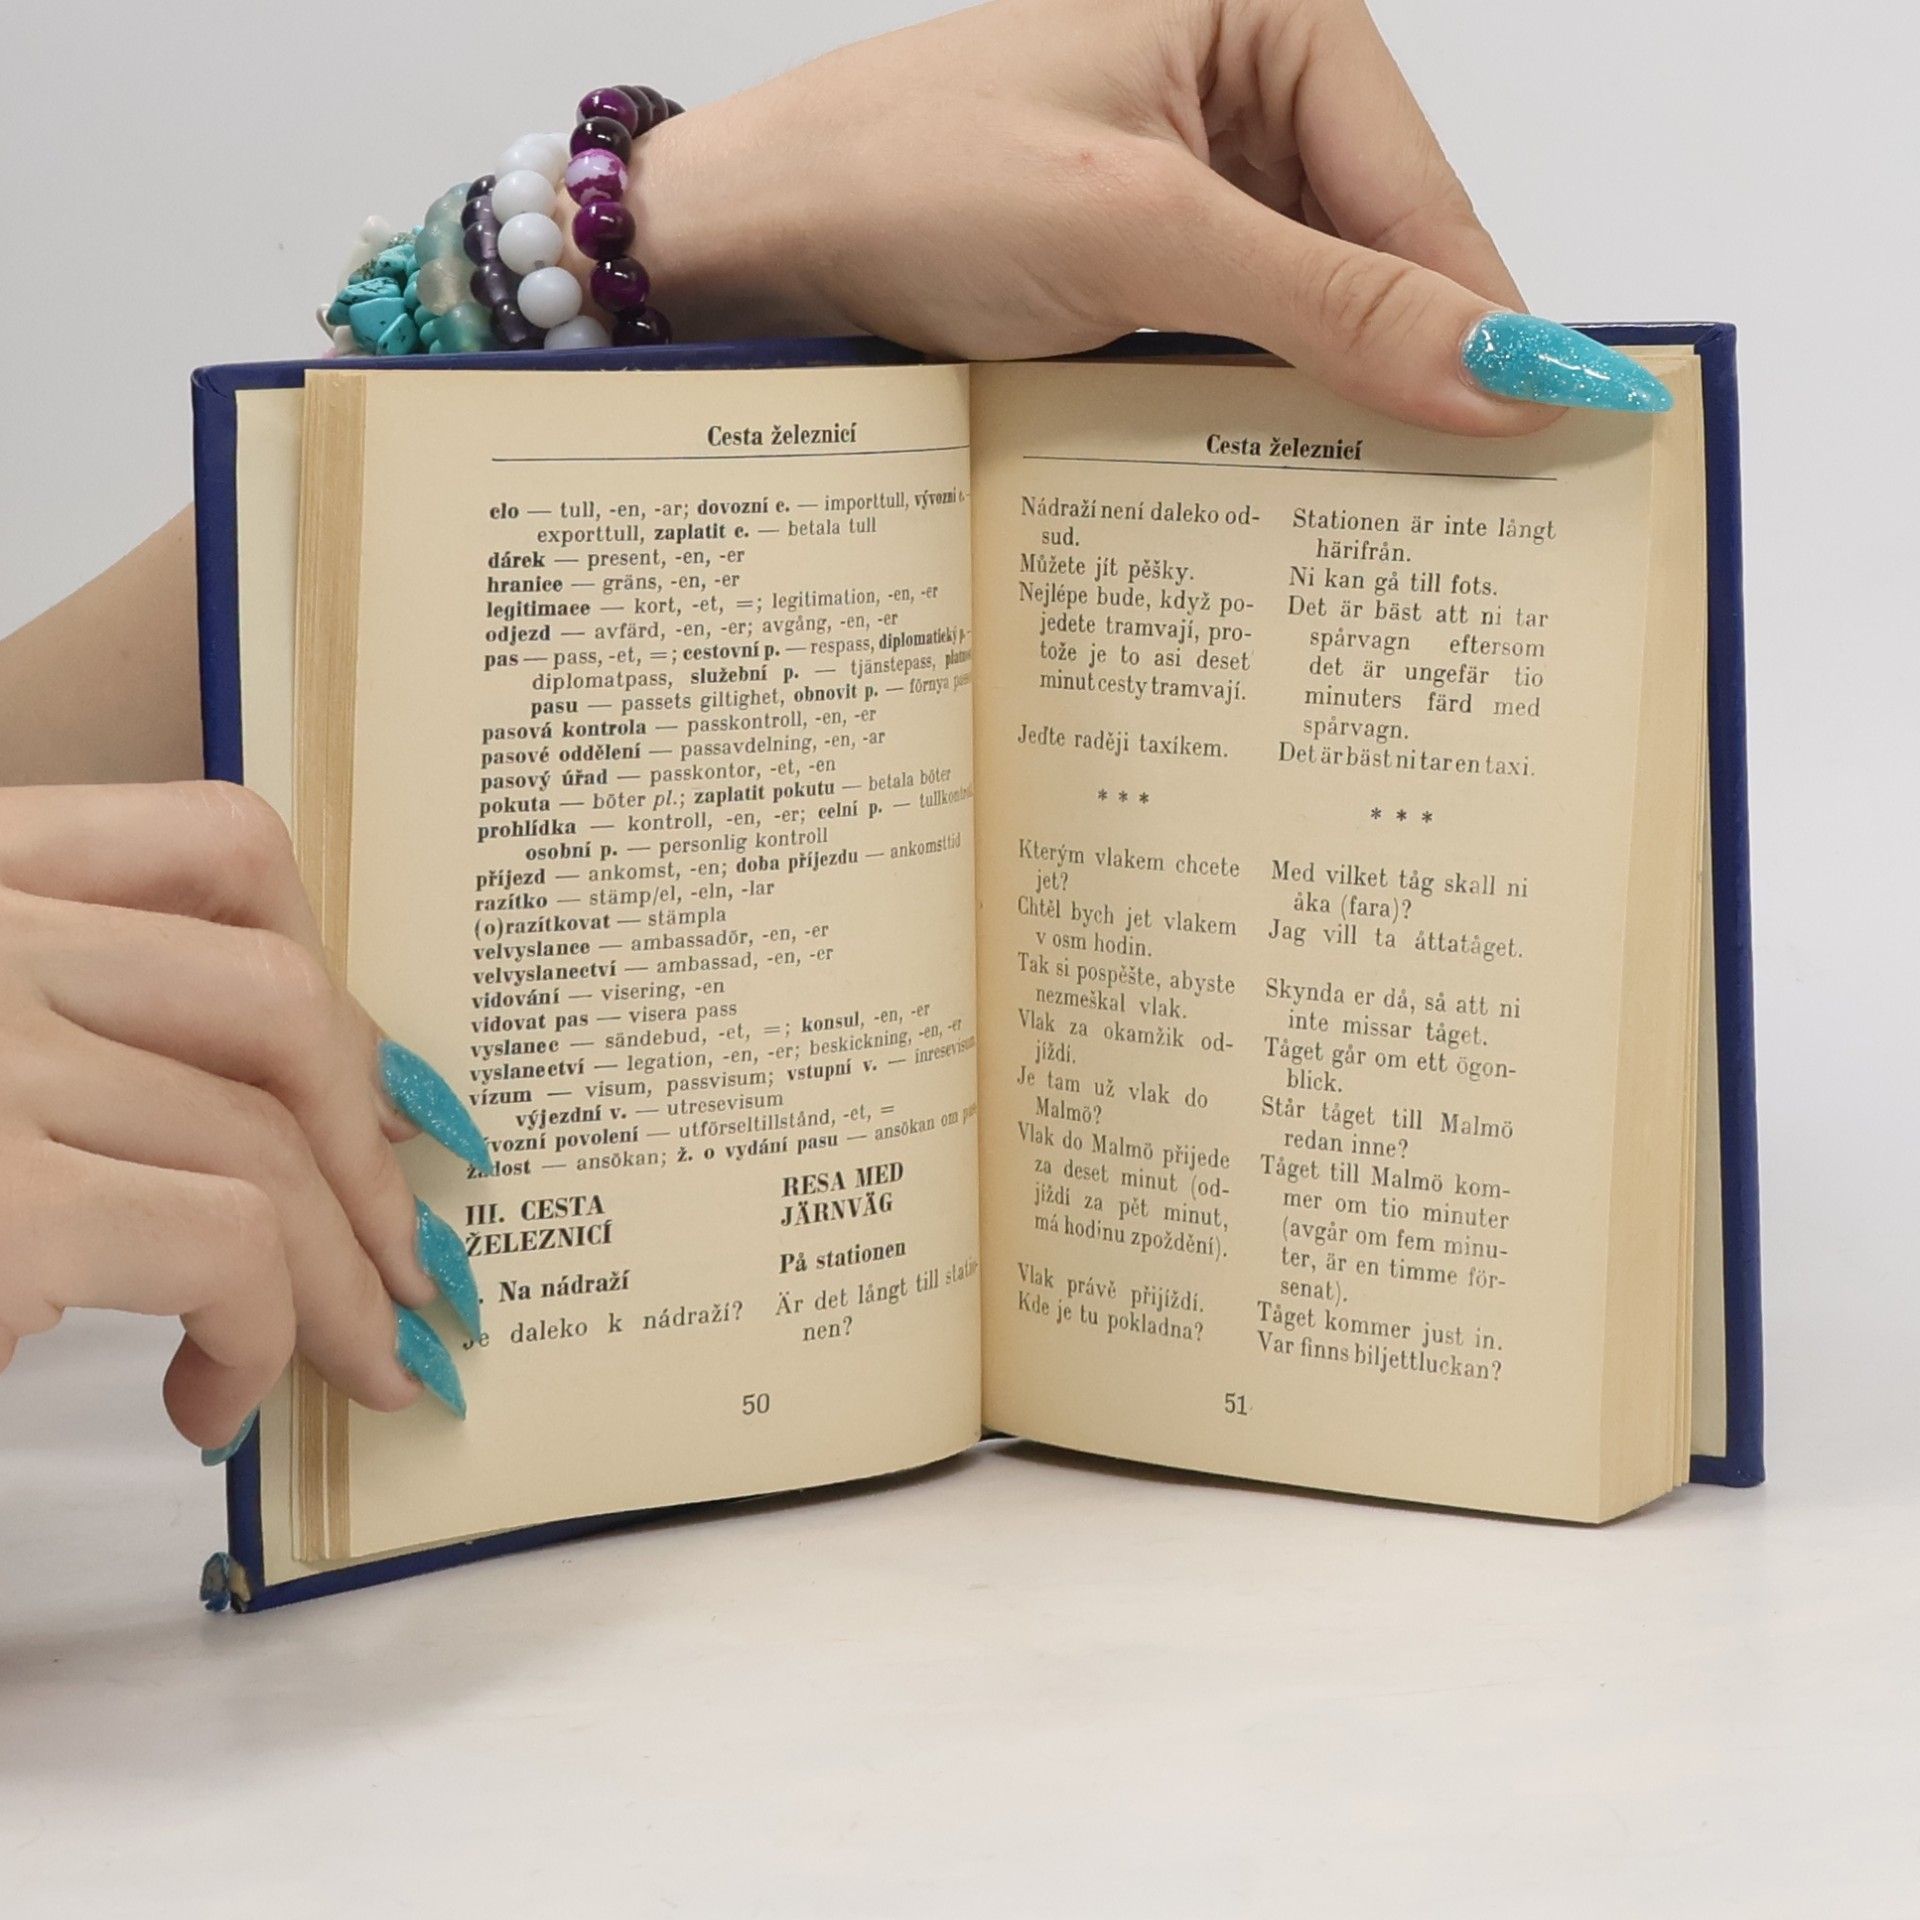 Cesta železnicí
clo — tull, -en, -ar; dovozní c. — importtull, vývozní c. —
exporttull, zaplatit c. — betala tull
dárek — present, -en, -er
hranice — gräns, -en, -er
legitimace — kort, -et, =; legitimation, -en, -er
odjezd — avfärd, -en, -er; avgång, -en, -er
pas — pass, -et, =; cestovní p. — respass, diplomatický p. —
diplomatpass, služební p. — tjänstepass,
pasu — passets giltighet, obnovit p. — förnya
pasová kontrola — passkontroll, -en, -er
pasové oddělení — passavdelning, -en, -ar
pasový úřad — passkontor, -et, -en
pokuta — böter pl.; zaplatit pokutu — betala böter
prohlídka — kontroll, -en, -er; celní p. —
osobní p. — personlig kontroll
příjezd — ankomst, -en; doba příjezdu — ankomsttid
razítko — stämp/el, -eln, -lar
(o)razítkovat — stämpla
velvyslance — ambassadör, -en, -er
velvyslanectví — ambassad, -en, -er
vidování — visering, -en
vidovat pas — visera pass
vyslanec — sändebud, -et, =; konsul, -en, -er
vyslanectví — legation, -en, -er; beskickning, -en, -er
vízum — visum, passvisum; vstupní v. — inresevisum
výjezdní v. — utresevisum
povolení — utförseltillstånd, -et, =
žádost — ansökan; ž. o vydání pasu — ansökan om
III. CESTA
ŽELEZNICÍ
RESA MED
JÄRNVÄG
Na nádraží
På stationen
Je daleko k nádraží?
Är det långt till statio-
nen?
50
Cesta železnicí
Nádraží není daleko od-
sud.
Můžete jít pěšky.
Nejlépe bude, když po-
jedete tramvají, pro-
tože je to asi deset
minut cesty tramvají.
Jeďte raději taxíkem.
* * *
Kterým vlakem chcete
jet?
Chtěl bych jet vlakem
v osm hodin.
Tak si pospěšte, abyste
nezmeškal vlak.
Vlak za okamžik od-
jíždí.
Je tam už vlak do
Malmö?
Vlak do Malmö přijede
za deset minut (od-
jíždí za pět minut,
má hodinu zpoždění).
Vlak právě přijíždí.
Kde je tu pokladna?
Stationen är inte långt
härifrån.
Ni kan gå till fots.
Det är bäst att ni tar
spårvagn eftersom
det är ungefär tio
minuters färd med
spårvagn.
Det är bäst ni tar en taxi.
* * *
Med vilket tåg skall ni
åka (fara)?
Jag vill ta åttatåget.
Skynda er då, så att ni
inte missar tåget.
Tåget går om ett ögon-
blick.
Står tåget till Malmö
redan inne?
Tåget till Malmö kom-
mer om tio minuter
(avgår om fem minu-
ter, är en timme för-
senat).
Tåget kommer just in.
Var finns biljettluckan?
51